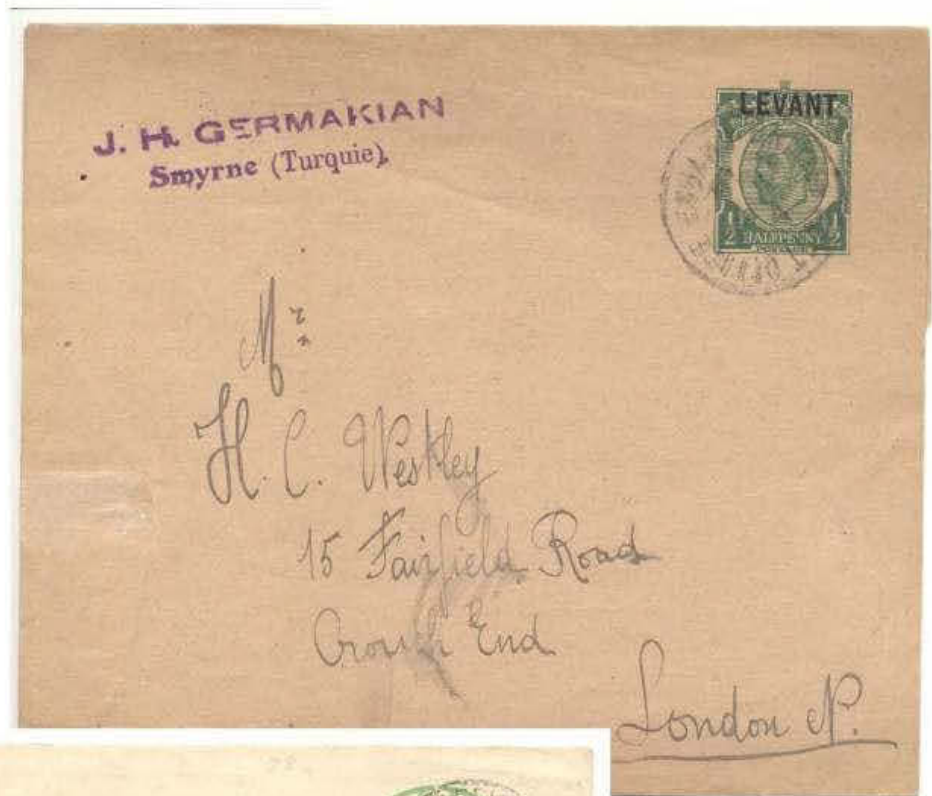 J. H. GERMAKIAN
Smyrne (Turquie).
LEVANT
½ HALFPENNY ½
Mr
H. C. Westley
15 Fairfield Road
Crouch End
London N.